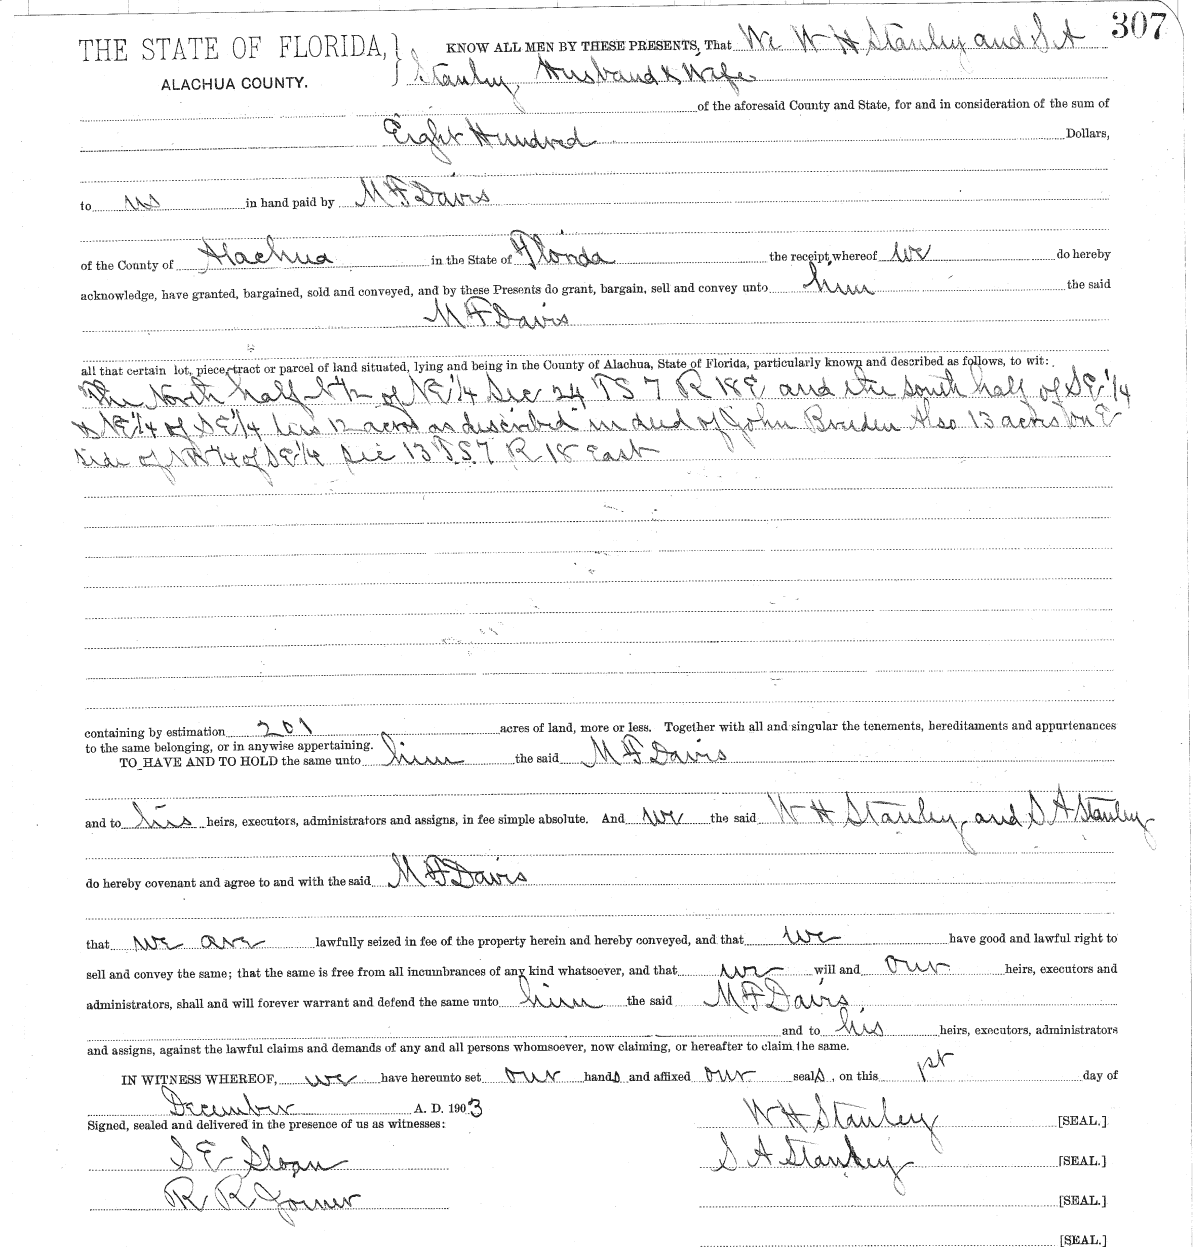 307
THE STATE OF FLORIDA, } KNOW ALL MEN BY THESE PRESENTS, That We W H Stanley and S A
ALACHUA COUNTY. Stanley, Husband & Wife
of the aforesaid County and State, for and in consideration of the sum of
Eight Hundred Dollars,
to us in hand paid by M F Davis
of the County of Alachua in the State of Florida the receipt whereof we do hereby
acknowledge, have granted, bargained, sold and conveyed, and by these Presents do grant, bargain, sell and convey unto him the said
M F Davis
all that certain lot, piece, tract or parcel of land situated, lying and being in the County of Alachua, State of Florida, particularly known and described as follows, to wit:
The North half of NE 1/4 Sec 24 TS 7 R 18 E and the south half of SE 1/4
& NE 1/4 of SE 1/4 less 12 acres as described in deed of John Also 13 acres on E
side of NW 1/4 of SE 1/4 Sec 13 T.S. 7 R 18 East
containing by estimation 201 acres of land, more or less. Together with all and singular the tenements, hereditaments and appurtenances
to the same belonging, or in anywise appertaining.
TO HAVE AND TO HOLD the same unto him the said M F Davis
and to his heirs, executors, administrators and assigns, in fee simple absolute. And we the said W H Stanley and S A Stanley
do hereby covenant and agree to and with the said M F Davis
that we are lawfully seized in fee of the property herein and hereby conveyed, and that we have good and lawful right to
sell and convey the same; that the same is free from all incumbrances of any kind whatsoever, and that we will and our heirs, executors and
administrators, shall and will forever warrant and defend the same unto him the said M F Davis,
and to his heirs, executors, administrators
and assigns, against the lawful claims and demands of any and all persons whomsoever, now claiming, or hereafter to claim the same.
IN WITNESS WHEREOF, we have hereunto set our hands and affixed our seals, on this 1st day of
December A. D. 1903
Signed, sealed and delivered in the presence of us as witnesses: W H Stanley [SEAL.]
S E Sloan S A Stanley [SEAL.]
R R Joiner [SEAL.]
[SEAL.]